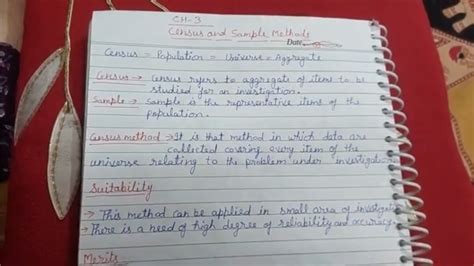 CH-3
Census and Sample Methods
Date
Census = Population = Universe = Aggregate
Census → Census refers to aggregate of items to be
studied for an investigation.
Sample → Sample is the representative items of the
population.
Census method → It is that method in which data are
collected covering every item of the
universe relating to the problem under investigation
Suitability
→ This method can be applied in small area of investigat
→ There is a need of high degree of reliability and accuracy
Merits